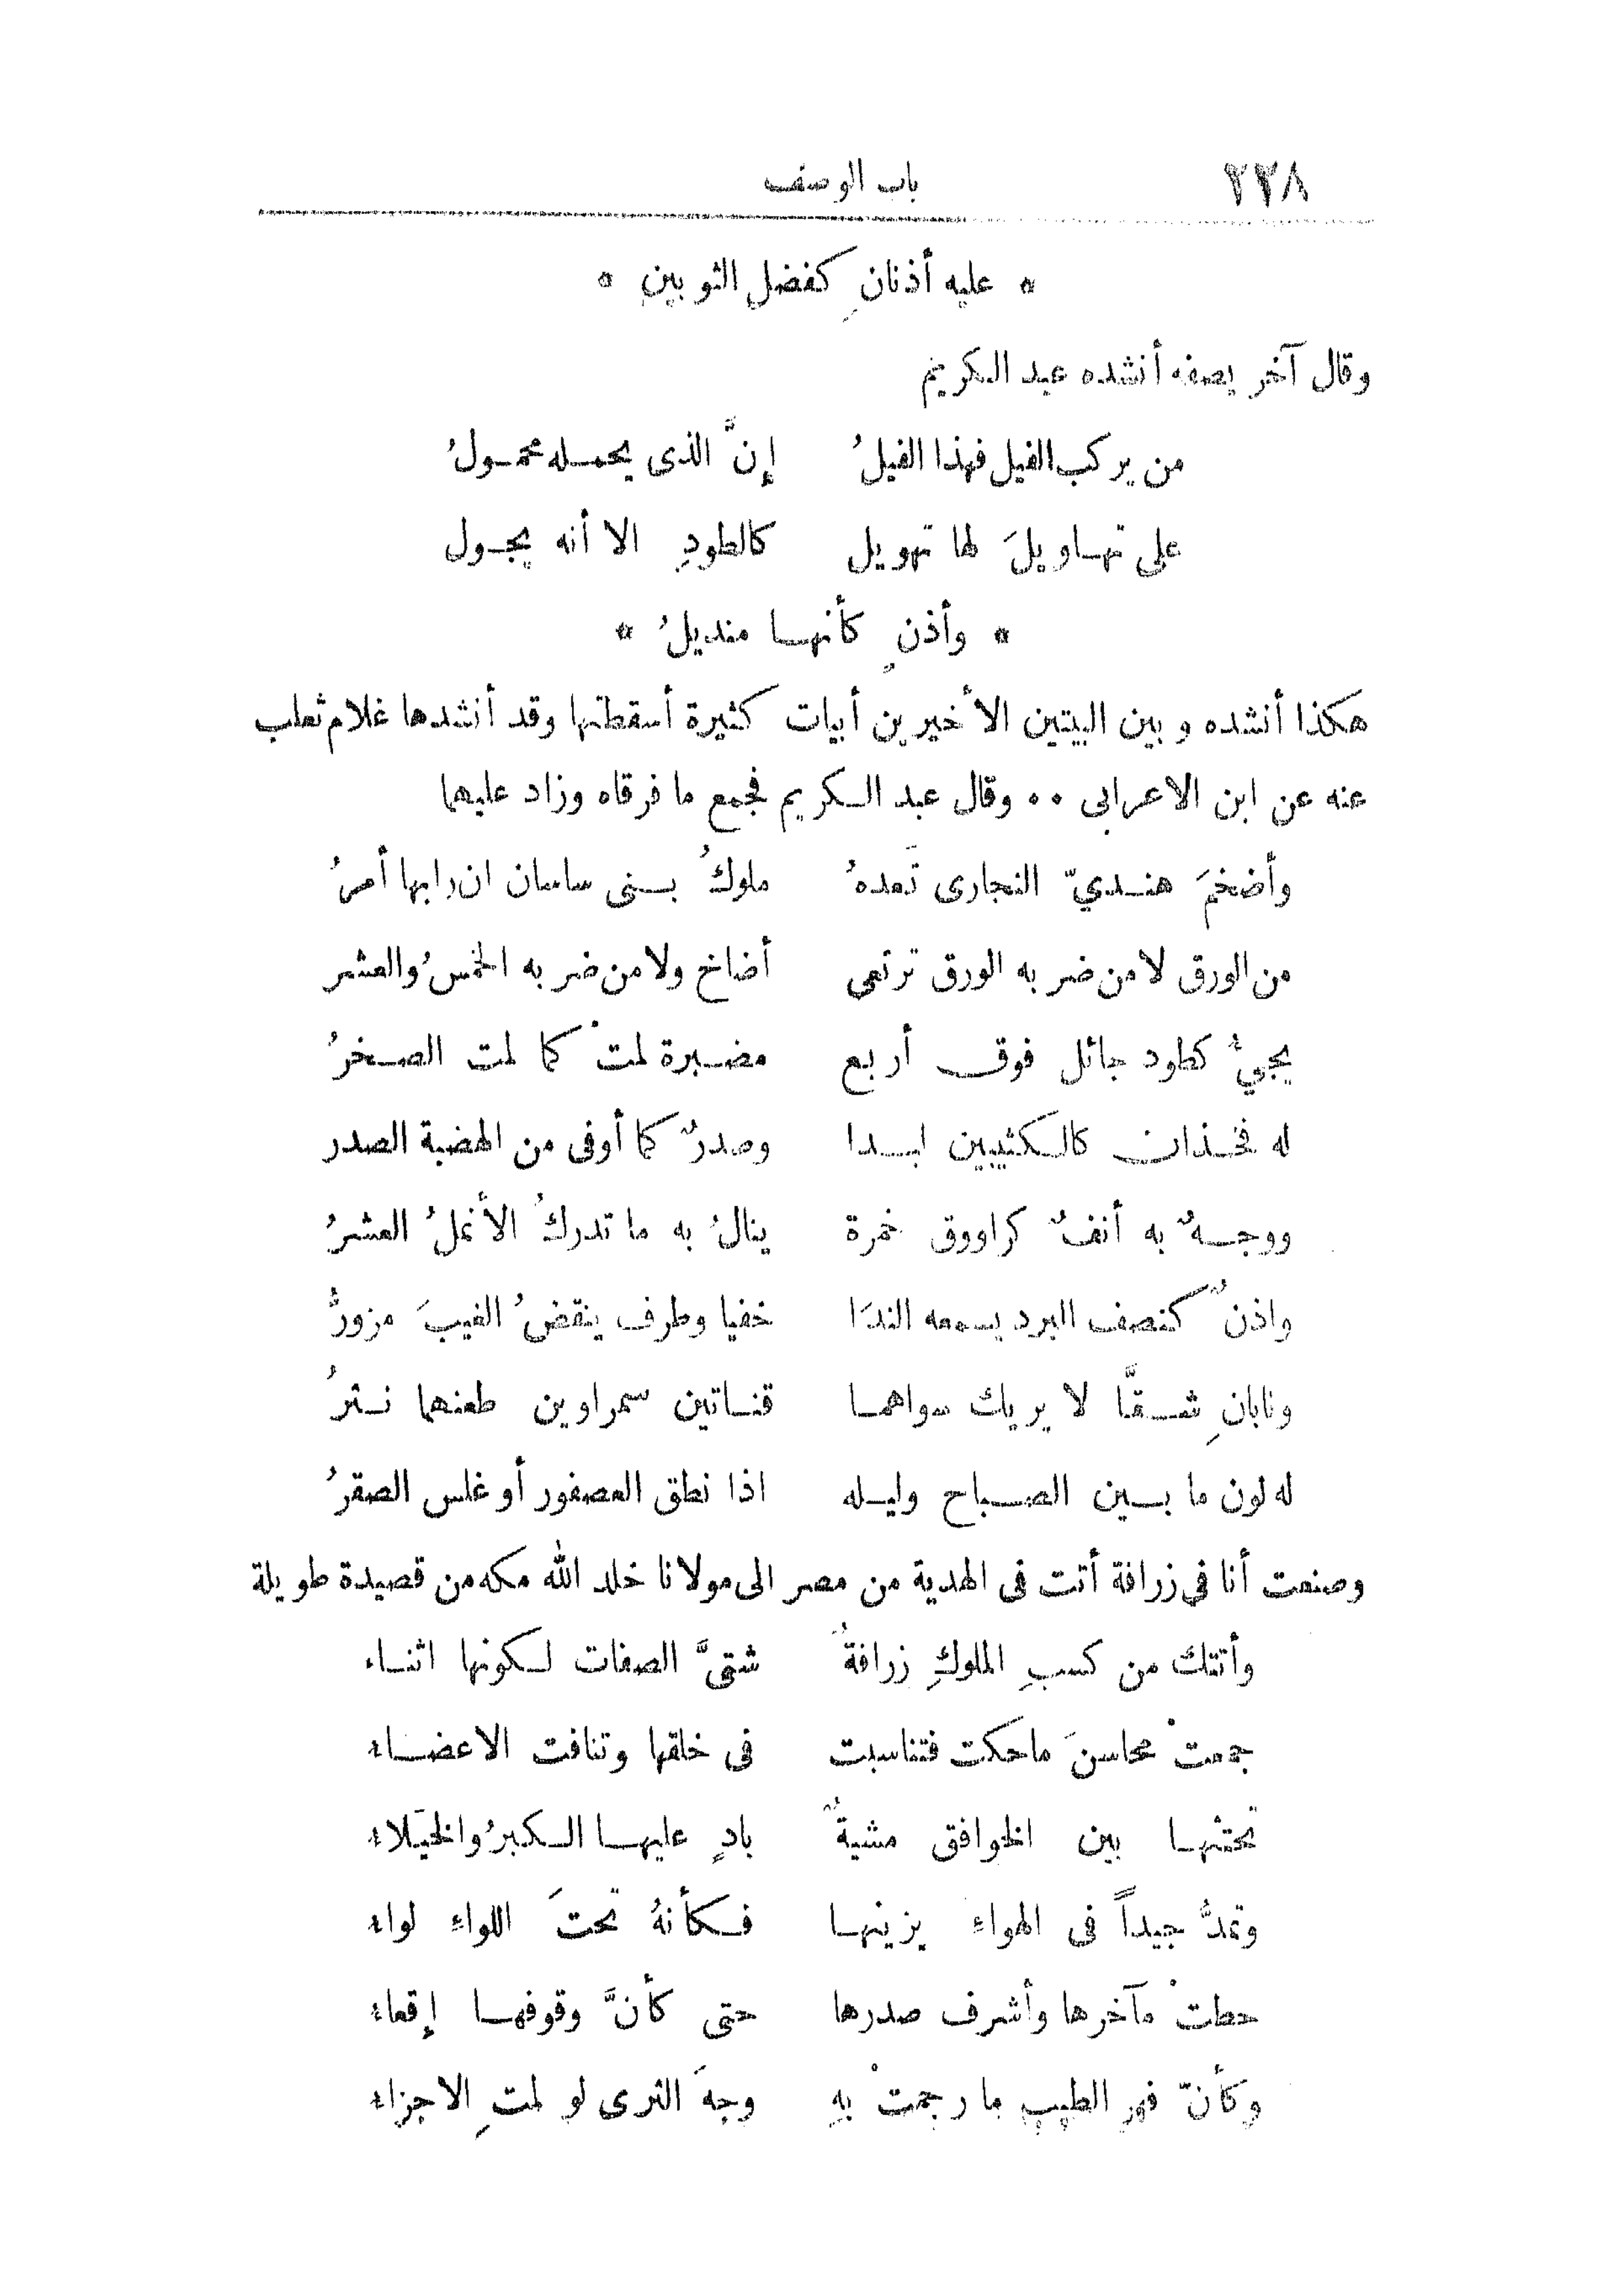 ٢٣٨ باب الوصف
* عليه أذنانِ كفضلِ الثوبين *
وقال آخر يصفه أنشده عبد الكريم
من يركب الفيل فهذا الفيلُ إنَّ الذى يحمله محمولُ
على تهاويلَ لها تهويل كالطودِ الا أنه يجول
* وأذنٍ كأنها منديلُ *
هكذا أنشده وبين البيتين الأخيرين أبيات كثيرة أسقطتها وقد أنشدها غلام ثعلب
عنه عن ابن الاعرابى ٠٠ وقال عبد الكريم فجمع ما فرقاه وزاد عليهما
وأضخمَ هنديّ النجارى تَعدهُ ملوكُ بنى ساسان ان رابها أمرُ
من الورق لا من ضربه الورق ترتعى أضاخ ولا من ضربه الخمسُ والعشر
يجيءُ كطود جائل فوق أربع مضبرة لمتْ كما لمت الصخرُ
له فخذان كالكثيبين لبدا وصدرٌ كما أوفى من الهضبة الصدر
ووجهٌ به أنفٌ كراووق خمرة ينالُ به ما تدركُ الأنملُ العشرُ
واذنٌ كنصف البرد يسمعه الندَا خفيا وطرف ينقضُ الغيبَ مزورُّ
ونابانِ شقَّا لا يريك سواهما قناتين سمراوين طعنهما نثرُ
له لون ما بين الصباح وليله اذا نطق العصفور أو غلس الصقرُ
وصنعت أنا فى زرافة أتت فى الهدية من مصر الى مولانا خلد الله ملكه من قصيدة طويلة
وأتتك من كسبِ الملوكِ زرافةٌ شتىَّ الصفات لكونها اثناء
جمعتْ محاسنَ ماحكت فتناسبت فى خلقها وتنافت الاعضاء
تحتثها بين الخوافق مشيةٌ بادٍ عليها الكبرُ والخيَلاء
وتمدُّ جيداً فى الهواءِ يزينها فكأنهُ تحتَ اللواءِ لواء
حطتْ مآخرها وأشرف صدرها حتى كأنَّ وقوفها إقعاء
وكأنّ فهر الطيبِ ما رجمتْ بهِ وجهَ الثرى لو لمتِ الاجزاء